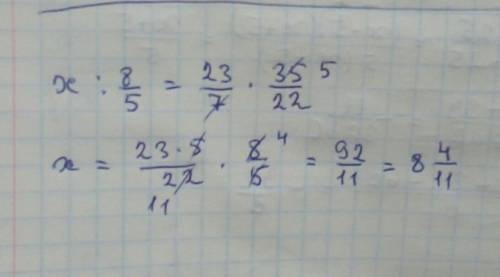 x : 8/5 = 23/7 · 35/22 5
x = 23·5/22 · 8/5 4 = 92/11 = 8 4/11
11